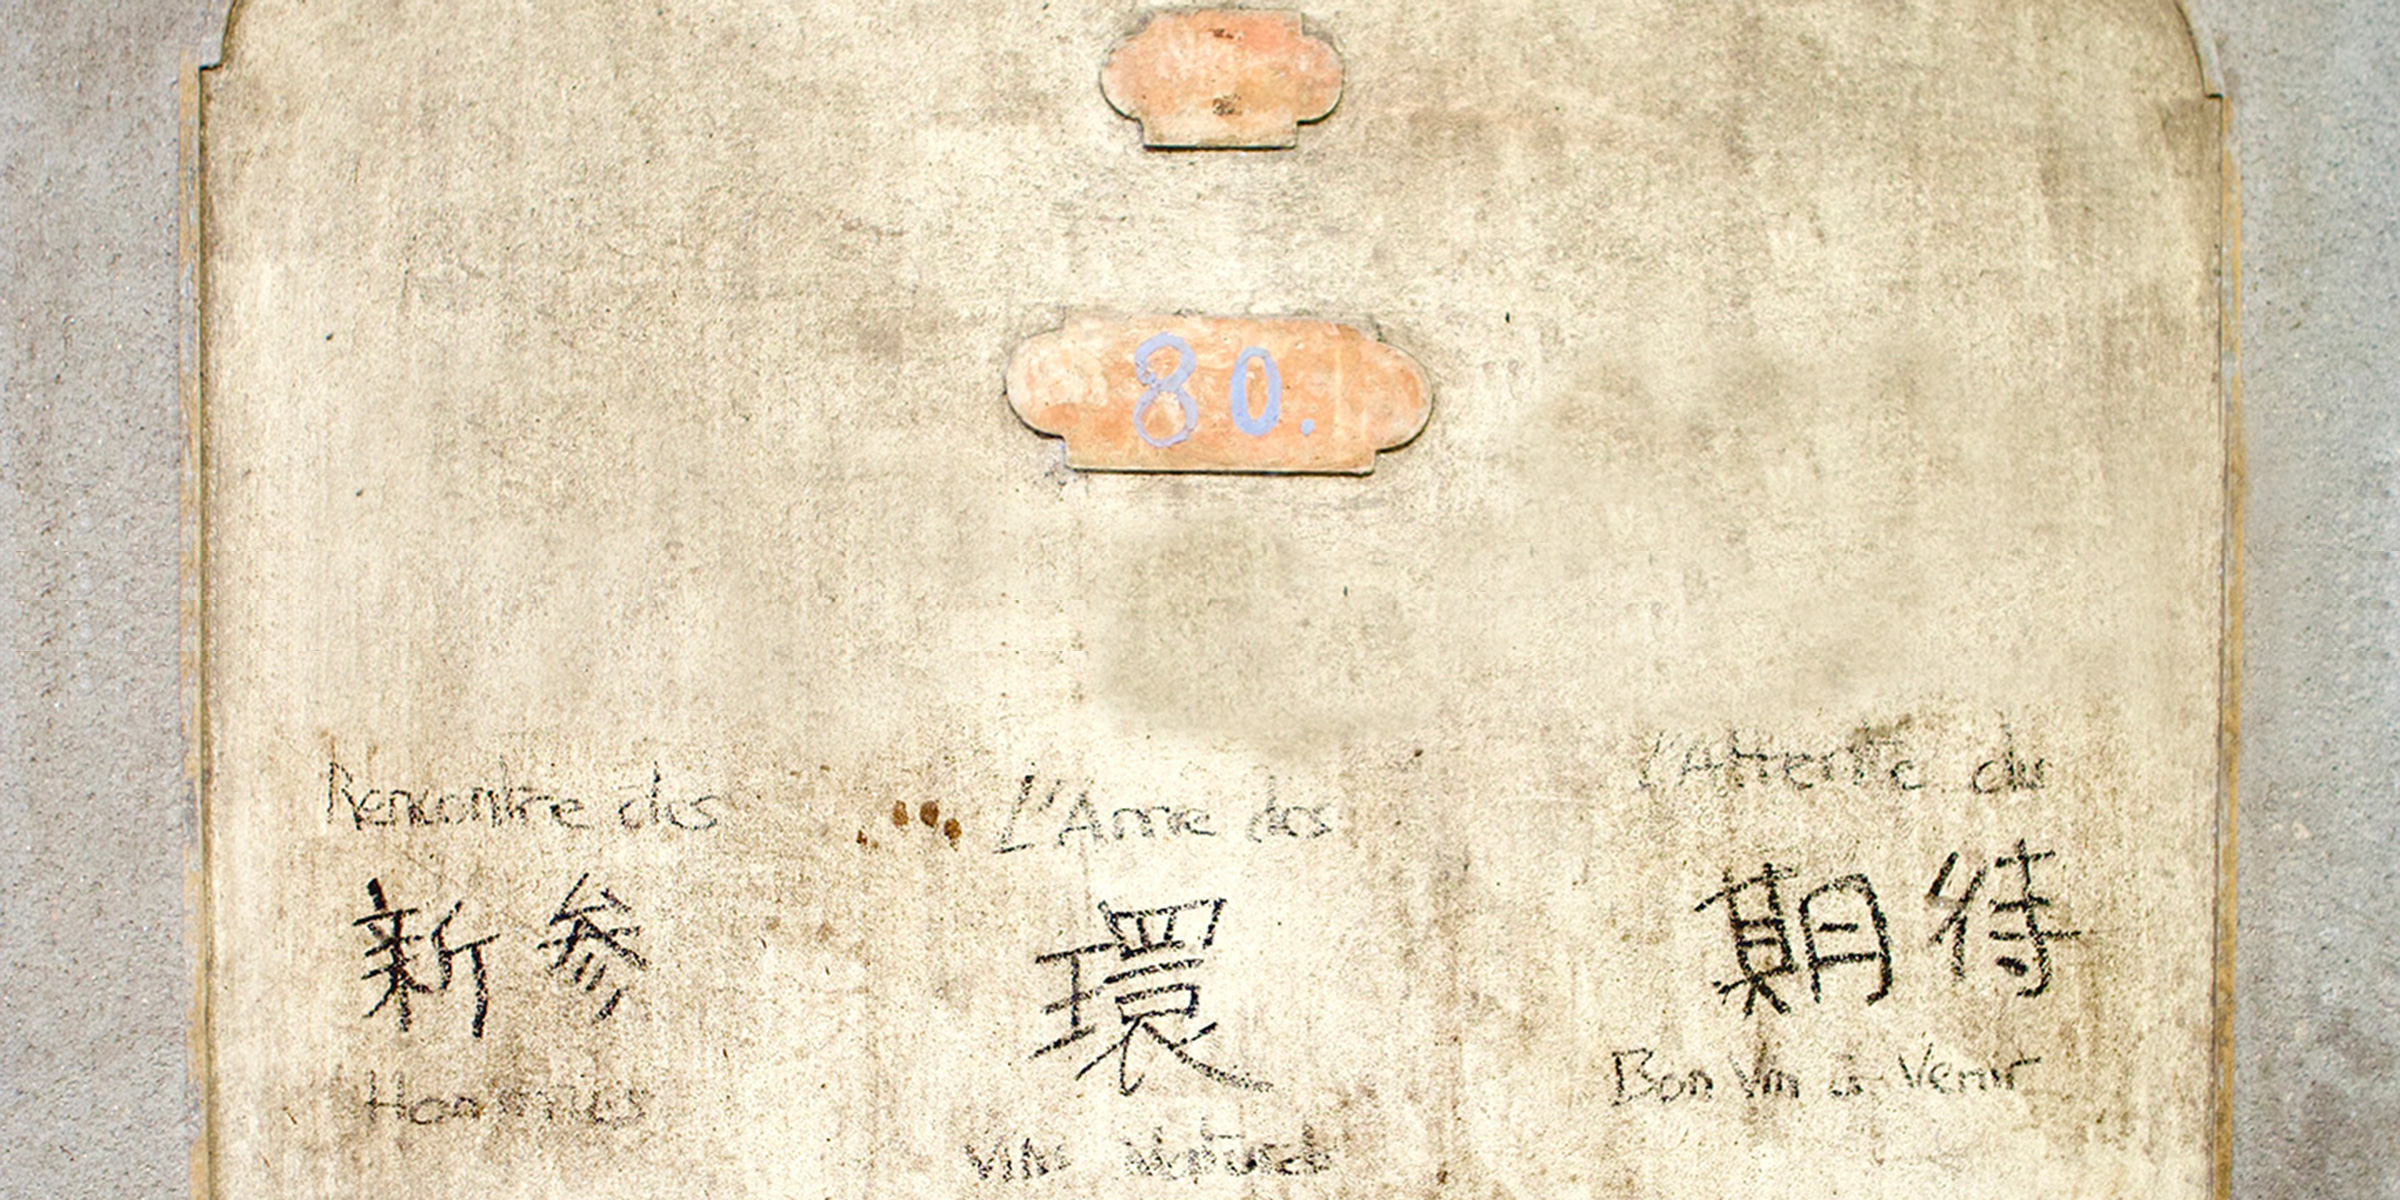 80.
Rencontre des
新参
Hommes
L'Ame des
環
Vins Naturels
l'Attente du
期待
Bon Vin à Venir